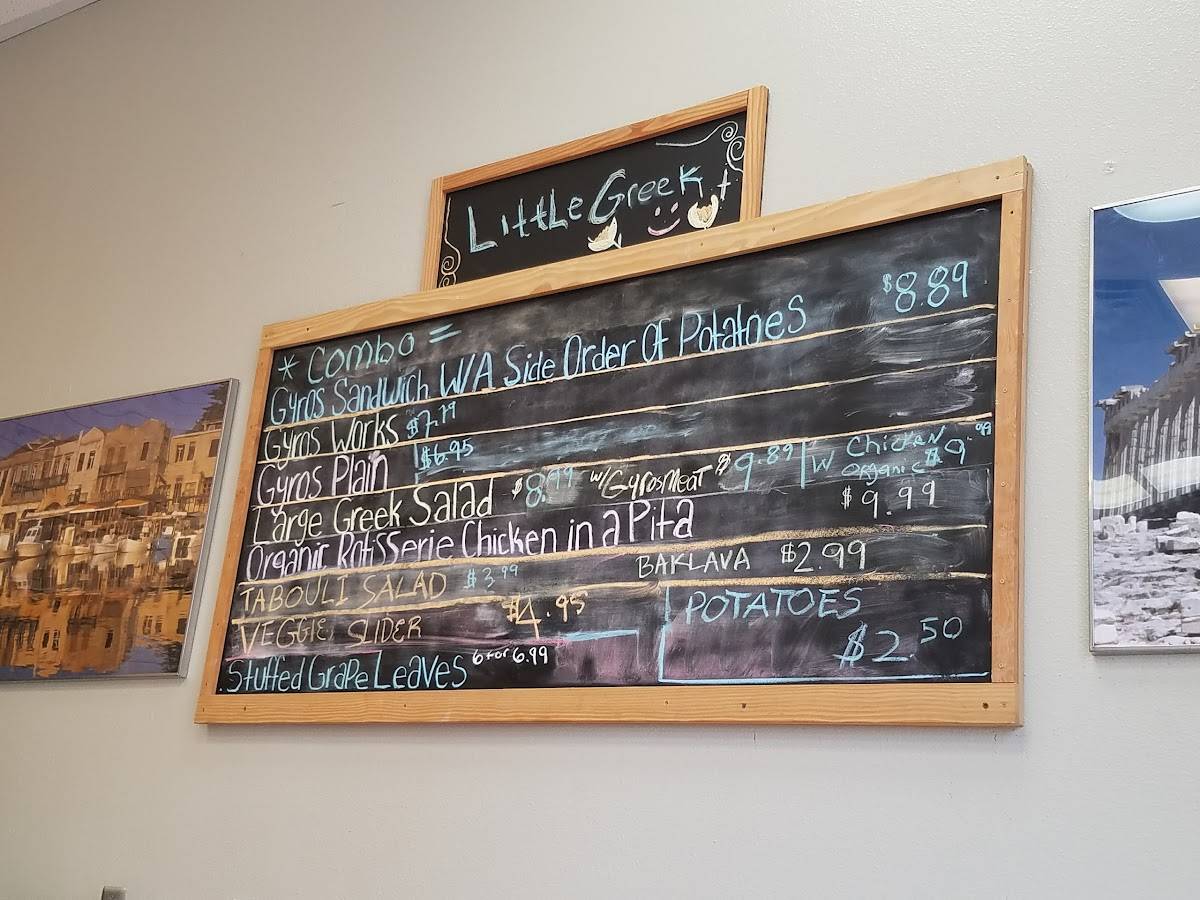 Little Greek
* Combo =
Gyros Sandwich W/A Side Order Of Potatoes $8.89
Gyros Works $7.79
Gyros Plain $6.95
Large Greek Salad $8.99 w/Gyrosmeat $9.89 W Chicken Organic $9.99
Organic Rotisserie Chicken in a Pita $9.99
TABOULI SALAD $3.99 BAKLAVA $2.99
VEGGIE SLIDER $4.95 POTATOES
$2.50
Stuffed Grape Leaves 6 for 6.99